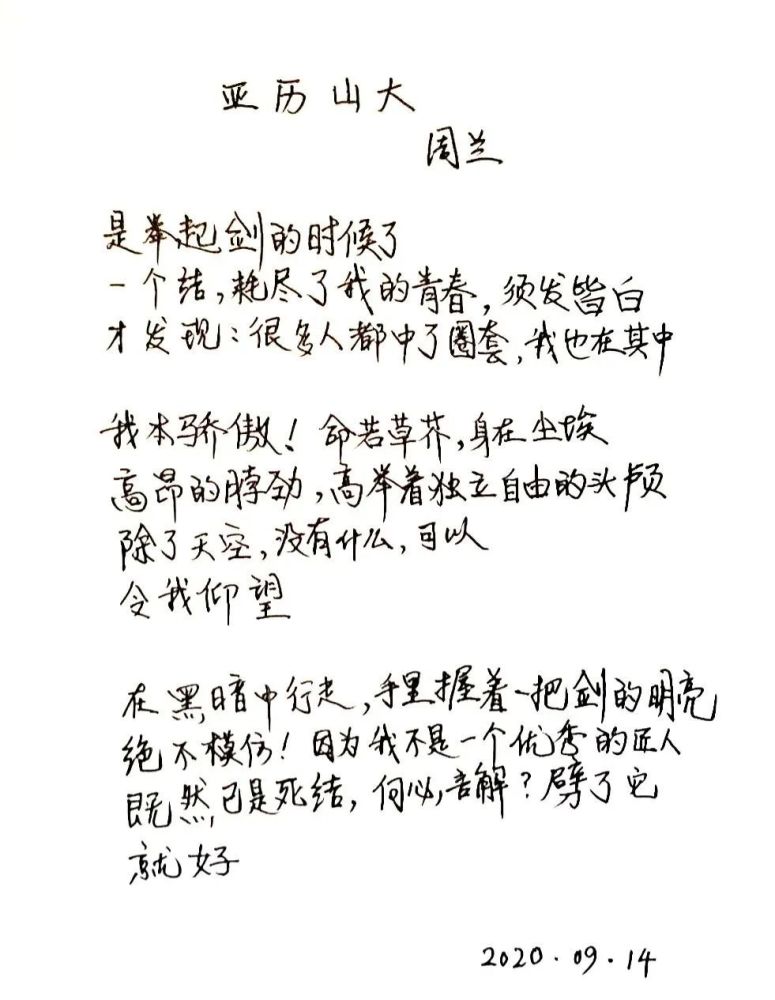 亚历山大
周兰
是举起剑的时候了
一个结，耗尽了我的青春，须发皆白
才发现：很多人都中了圈套，我也在其中
我本骄傲！命若草芥，身在尘埃
高昂的脖劲，高举着独立自由的头颅
除了天空，没有什么，可以
令我仰望
在黑暗中行走，手里握着一把剑的明亮
绝不模仿！因为我不是一个优秀的匠人
既然已是死结，何必苦解？劈了它
就好
2020.09.14